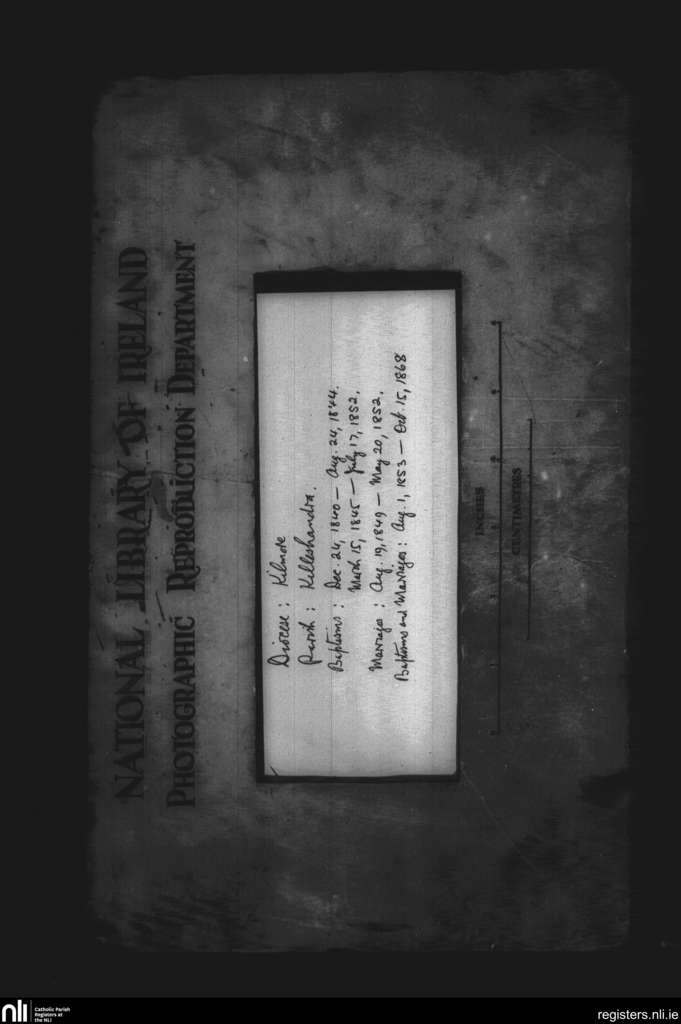 NATIONAL LIBRARY OF IRELAND
PHOTOGRAPHIC REPRODUCTION DEPARTMENT
Diocese : Kilmore
Parish : Killeshandra.
Baptisms : Dec. 24, 1840 — Aug. 24, 1844.
March 15, 1845 — July 17, 1852.
Marriages : Aug. 19, 1849 — May 20, 1852.
Baptisms and Marriages : Aug. 1, 1853 — Oct 15, 1868
INCHES
CENTIMETRES
nli
Catholic Parish
Registers at
the NLI
registers.nli.ie